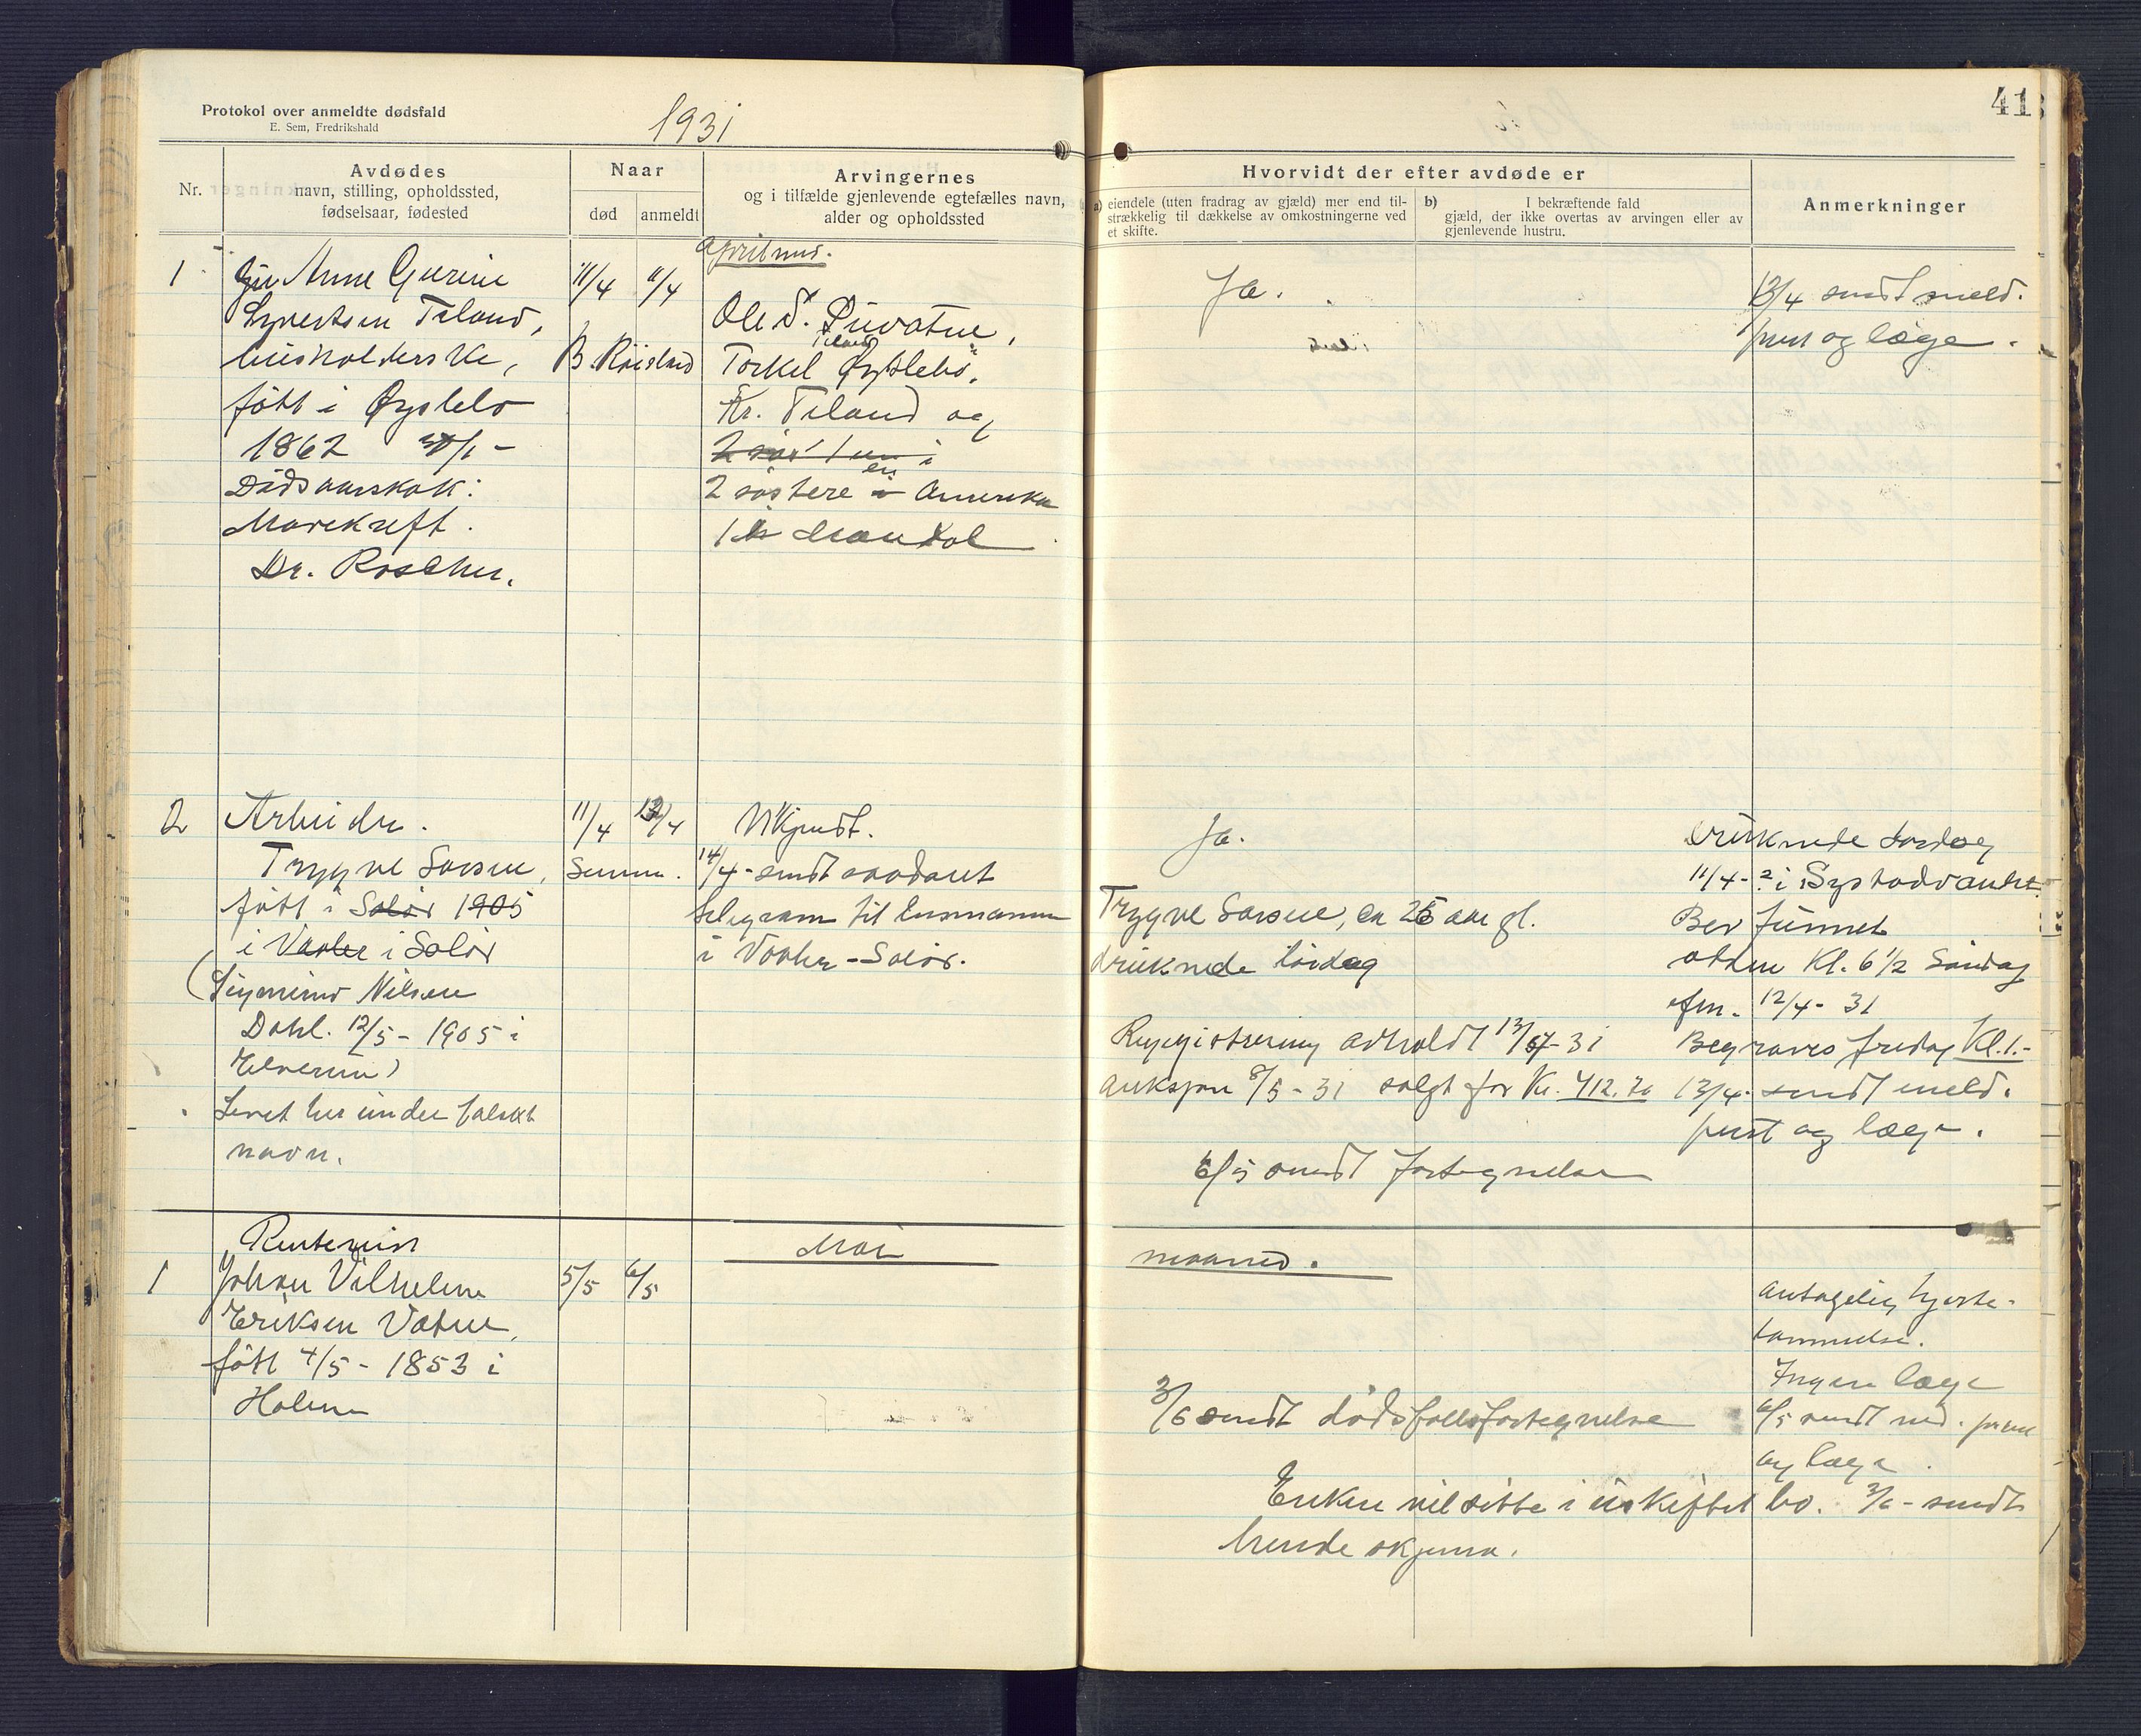 Protokol over anmeldte dødsfald
E. Sem, Fredrikshald
1931
Nr.
Avdødes
navn, stilling, opholdssted,
fødselsaar, fødested
Naar
død
anmeldt
Arvingernes
og i tilfælde gjenlevende egtefælles navn,
alder og opholdssted
1
Anne Gurine
Syvertsen Teland,
husholderske,
født i Øyslebø
1862
Dødsaarsak:
Marekreft.
Dr. Roscher.
11/4
11/4
B. Røisland
Ole S.
Torkel Øyslebø,
Kr. Teland og
2 søstere en i Amerika
1 i Mandal
2
Arbeider.
Trygve Larsen,
født i Solør 1905
i Vaaler i Solør
(Sigmund Nilsen
Dahl. 12/5 - 1905 i
Elverum)
Levet her under falskt
navn.
11/4
13/4
Ukjendt.
14/4 - sendt saadant
telegram til lensmannen
i Vaaler - Solør.
1
Rentenist
Johan Vilhelm
Eriksen Vatne,
født 4/5 - 1853 i
Holum
5/5
6/5
Mai
413
Hvorvidt der efter avdøde er
a) eiendele (uten fradrag av gjæld) mer end til-
strækkelig til dækkelse av omkostningerne ved
et skifte.
b) I bekræftende fald
gjæld, der ikke overtas av arvingen eller av
gjenlevende hustru.
Anmerkninger
Ja.
13/4 sendt meld.
prest og læge.
Ja.
Trygve Larsen, ca 25 aar gl.
druknede lørdag
Reggistrering avholdt 13/4-31
auksjon 8/5 - 31 solgt for Kr. 412.70
6/5 sendt fortegnelse
Druknede Lørdag
11/4 - ? i
Blev funnet
atten Kl. 6 1/2 Søndag
fm. 12/4 - 31
Begraves fredag Kl. 1.-
13/4 - sendt meld.
prest og læge.
maaned.
3/6 sendt dødsfallsfortegnelse
Enken vil sitte i uskiftet bo. 3/6 - sendt
hende skjema.
antagelig hjerte-
lammelse.
Ingen læge
6/5 sendt med. prest
og læge.